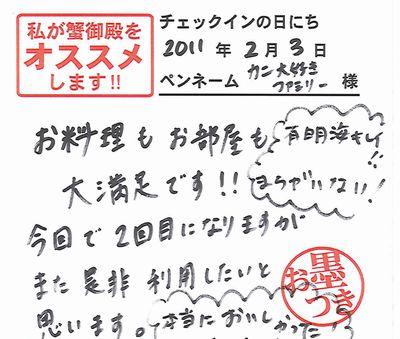 私が蟹御殿を
オススメ
します!!
チェックインの日にち
2011年2月3日
ペンネーム カニ大好きファミリー 様
お料理もお部屋も
大満足です!!
有明海キレイ!!
まちがいない!
今回で2回目になりますが
また是非利用したいと
思います。
本当においしかった
お墨つき